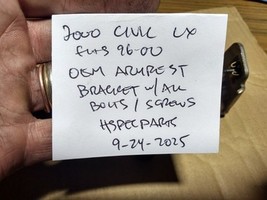 2000 CIVIC LX
fits 96-00
OEM ARMREST
BRACKET w/ ALL
BOLTS / SCREWS
HSPECPARTS
9-24-2025